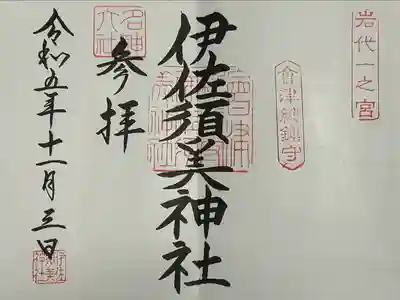 岩代一之宮
會津総鎮守
伊佐須美神社
参拝
名神大社
令和五年十一月三日